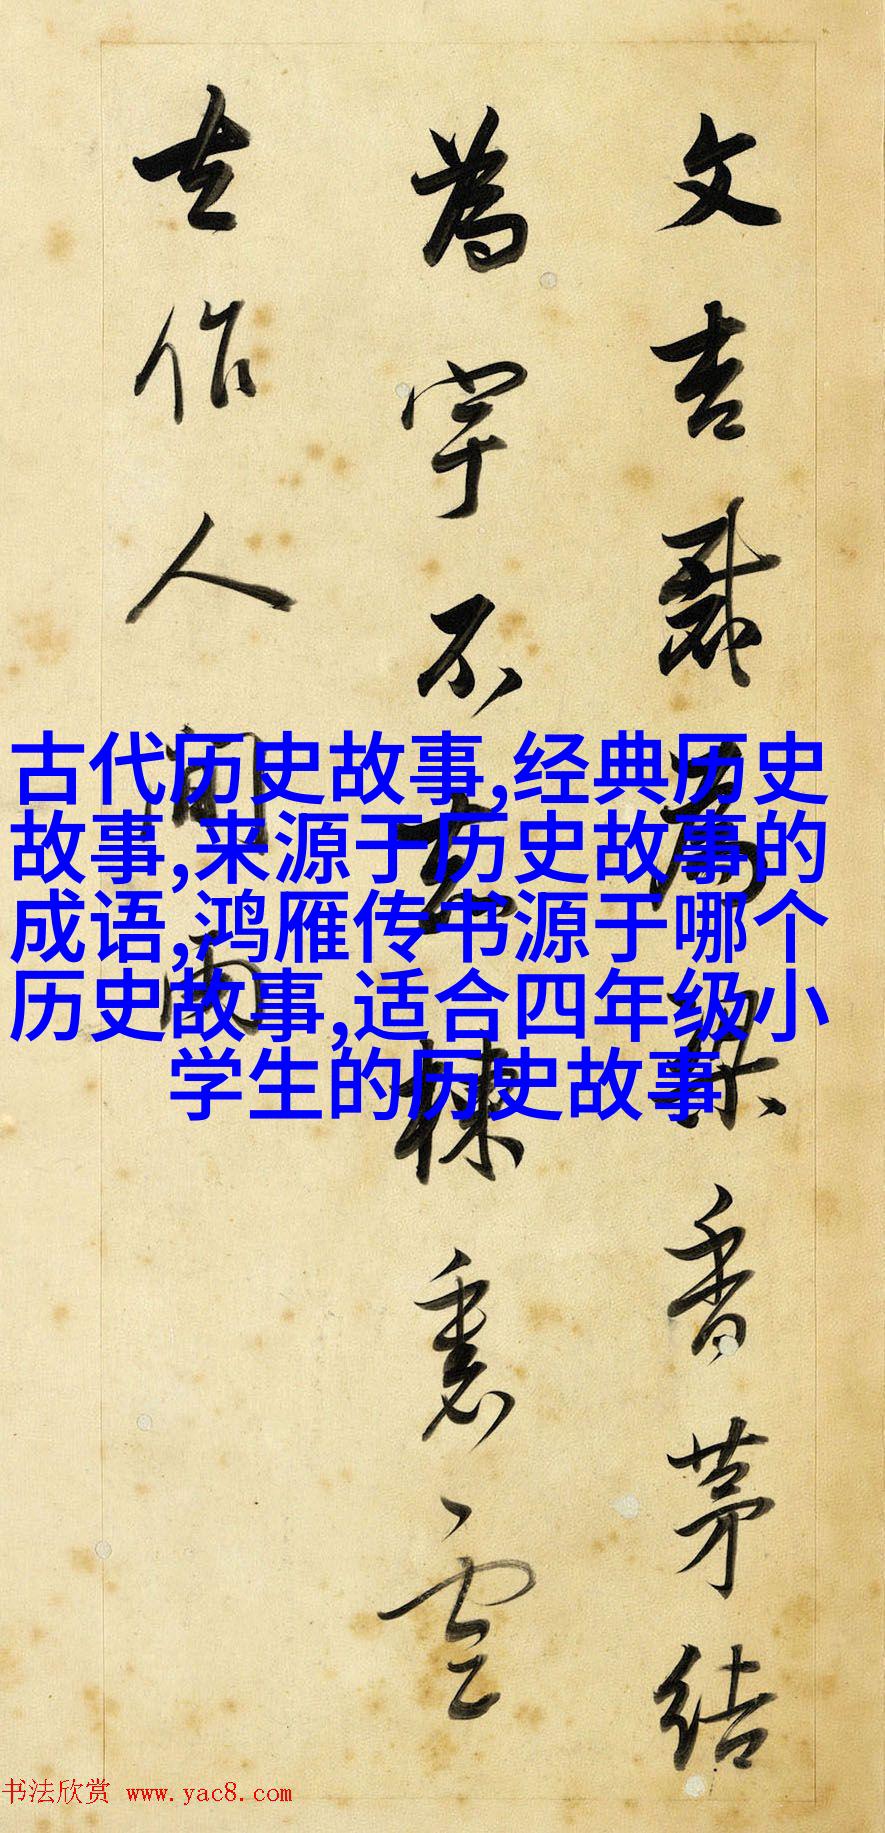 文杏裁為梁香茅結
為宇不知棟裏雲
去作人間雨
古代历史故事,经典历史
故事,来源于历史故事的
成语,鸿雁传书源于哪个
历史故事,适合四年级小
学生的历史故事
书法欣赏 www.yac8.com